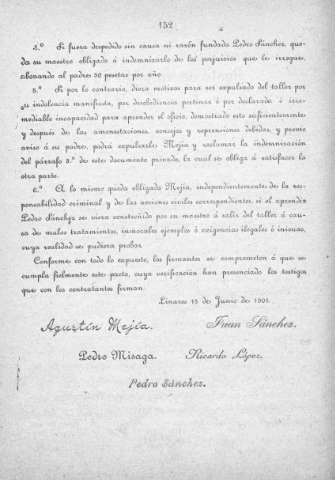 152
4.º Si fuera despedido sin causa ni razón fundada Pedro Sánchez, que-
da su maestro obligado á indemnizarlo de los perjuicios que le irrogue,
abonando al padre 50 pesetas por año.
5.º Si por lo contrario, diera motivos para ser expulsado del taller por
su indolencia manifiesta, por desobediencia pertinaz ó por declarada é irre-
mediable incapacidad para aprender el oficio, demostrado esto suficientemente
y después de las amonestaciones, consejos y reprensiones debidas, y previo
aviso á su padre, podrá expulsarlo Mejía y reclamar la indemnización
del párrafo 3.º de este documento privado, la cual se obliga á satisfacer la
otra parte.
6.º A lo mismo queda obligado Mejía, independientemente de la res-
ponsabilidad criminal y de las acciones civiles correspondientes, si el aprendiz
Pedro Sánchez se viera constreñido por su maestro á salir del taller á cau-
sa de malos tratamientos, inmorales ejemplos ó exigencias ilegales ó inicuas,
cuya realidad se pudiera probar.
Conforme con todo lo expuesto, los firmantes se comprometen á que se
cumpla fielmente este pacto, cuya verificación han presenciado los testigos
que con los contratantes firman.
Linares 15 de Junio de 1901.
Agustín Mejía. Juan Sánchez.
Pedro Misaga. Ricardo López.
Pedro Sánchez.